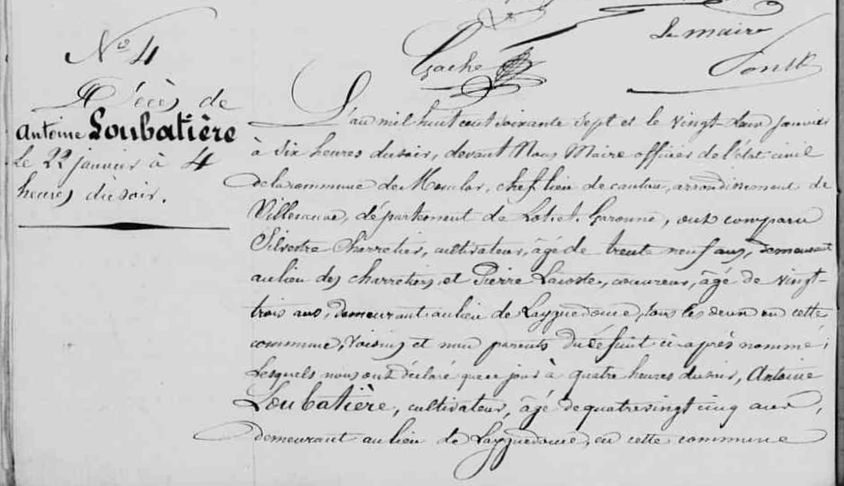 Le maire
Gache
Nº 4
Décès de
Antoine Loubatière
le 22 janvier à 4
heures du soir.
L'an mil huit cent soixante sept et le vingt deux janvier
à six heures du soir, devant Nous Maire officier de l'état civil
de la commune de Monclar, chef lieu de canton, arrondissement de
Villeneuve, département de Lot et Garonne, ont comparu
Silvestre Charretier, cultivateur, âgé de trente neuf ans, demeurant
au lieu des charretiers, et Pierre Lacoste, couvreur, âgé de vingt-
trois ans, demeurant au lieu de tous les deux en cette
commune, voisins et non parents du défunt ci-après nommé;
Lesquels nous ont déclaré que ce jour à quatre heures du soir, Antoine
Loubatière, cultivateur, âgé de quatre vingt cinq ans,
demeurant au lieu de en cette commune